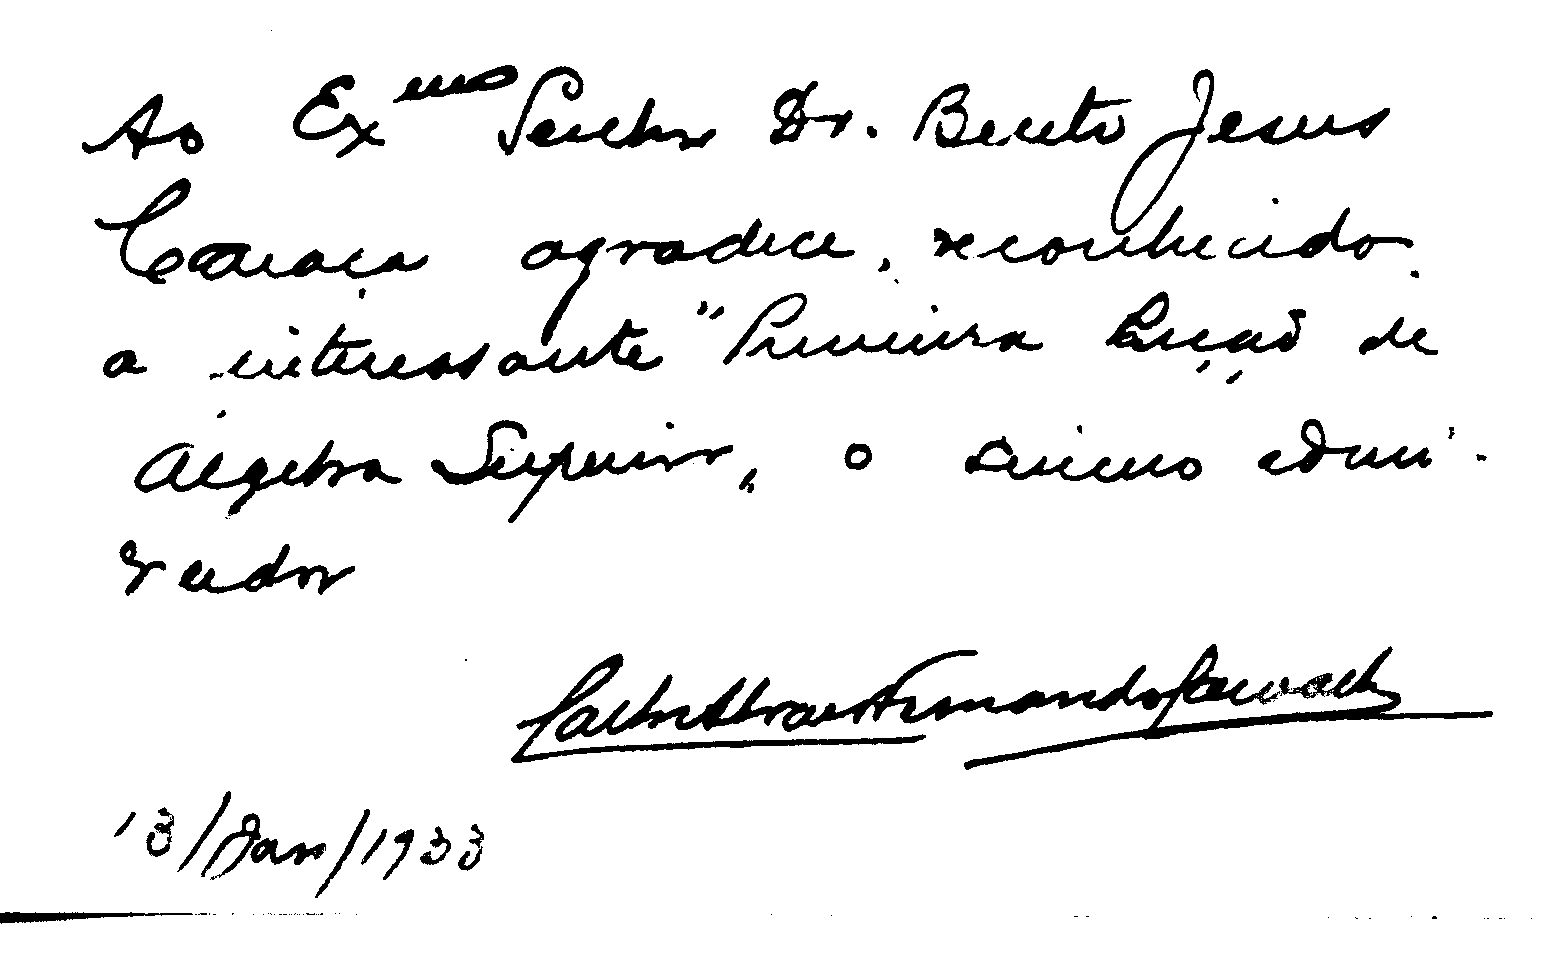 Ao Exmo Senhor Dr. Bento Jesus
Caraça agradece, reconhecido,
a interessante "Primeira Lição de
Álgebra Superior", o sincero admi-
rador
Fernando
13/Jan/1933